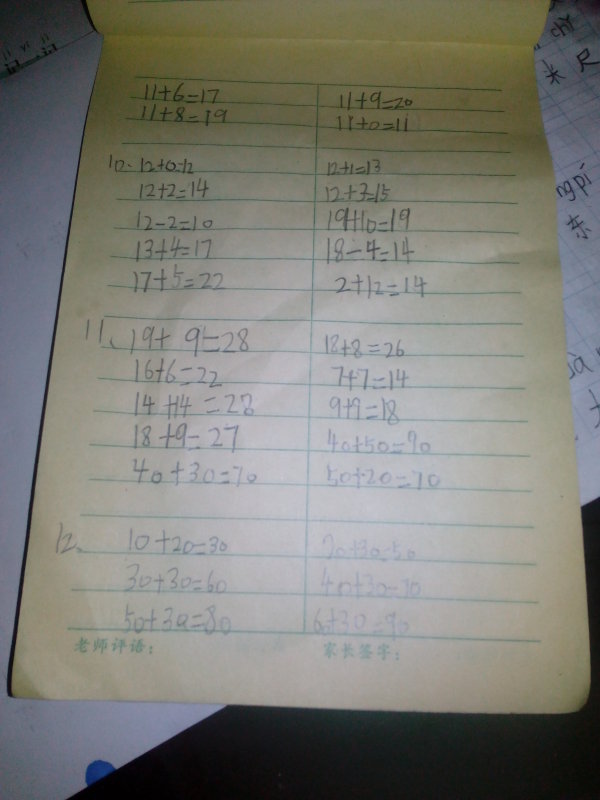 11+6=17 11+9=20
11+8=19 11+0=11
10、12+0=12 12+1=13
12+2=14 12+3=15
12-2=10 19+10=19
13+4=17 18-4=14
17+5=22 2+12=14
11、19+9=28 18+8=26
16+6=22 7+7=14
14+14=28 9+9=18
18+9=27 40+50=90
40+30=70 50+20=70
12、10+20=30 20+30=50
30+30=60 40+30=70
50+30=80 60+30=90
老师评语： 家长签字：
chǐ
米 尺
pí
东